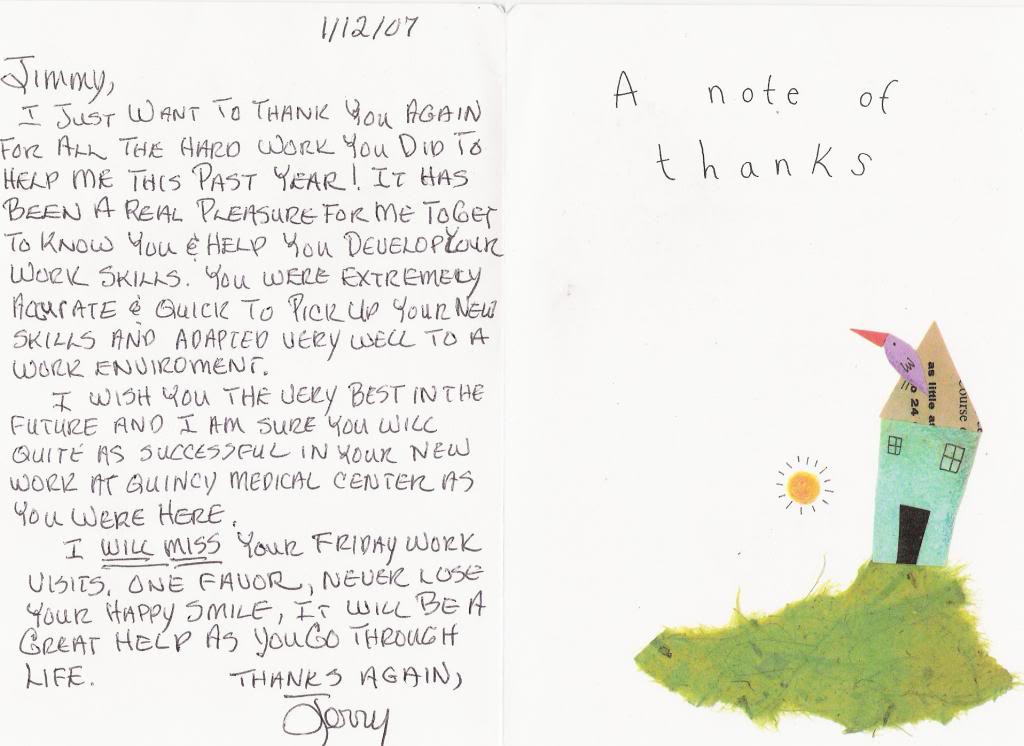 1/12/07
Jimmy,
I JUST WANT TO THANK YOU AGAIN
FOR ALL THE HARD WORK YOU DID TO
HELP ME THIS PAST YEAR! IT HAS
BEEN A REAL PLEASURE FOR ME TO GET
TO KNOW YOU & HELP YOU DEVELOP YOUR
WORK SKILLS. YOU WERE EXTREMELY
ACCURATE & QUICK TO PICK UP YOUR NEW
SKILLS AND ADAPTED VERY WELL TO A
WORK ENVIROMENT.
I WISH YOU THE VERY BEST IN THE
FUTURE AND I AM SURE YOU WILL
QUITE AS SUCCESSFUL IN YOUR NEW
WORK AT QUINCY MEDICAL CENTER AS
YOU WERE HERE.
I WILL MISS YOUR FRIDAY WORK
VISITS. ONE FAVOR, NEVER LOSE
YOUR HAPPY SMILE, IT WILL BE A
GREAT HELP AS YOU GO THROUGH
LIFE. THANKS AGAIN,
Jerry
A note of
thanks
as little as
24
Course